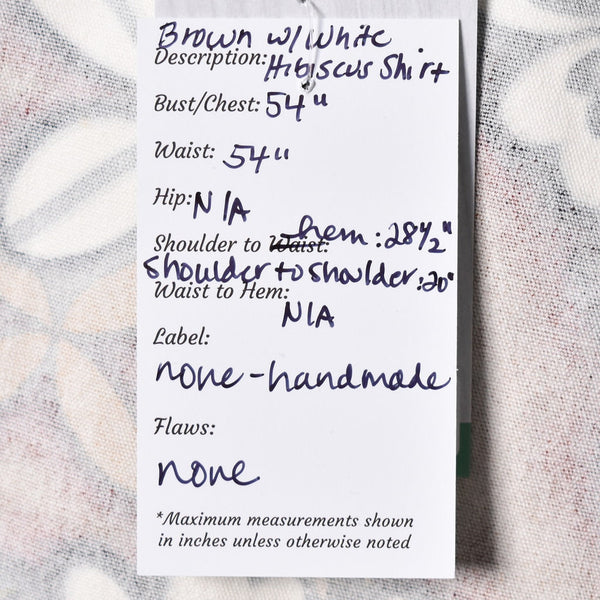 Brown w/ White
Description: Hibiscus Shirt
Bust/Chest: 54"
Waist: 54"
Hip: N/A
Shoulder to Waist: hem: 28 1/2"
Shoulder to Shoulder: 20"
Waist to Hem:
N/A
Label:
none - handmade
Flaws:
none
*Maximum measurements shown
in inches unless otherwise noted